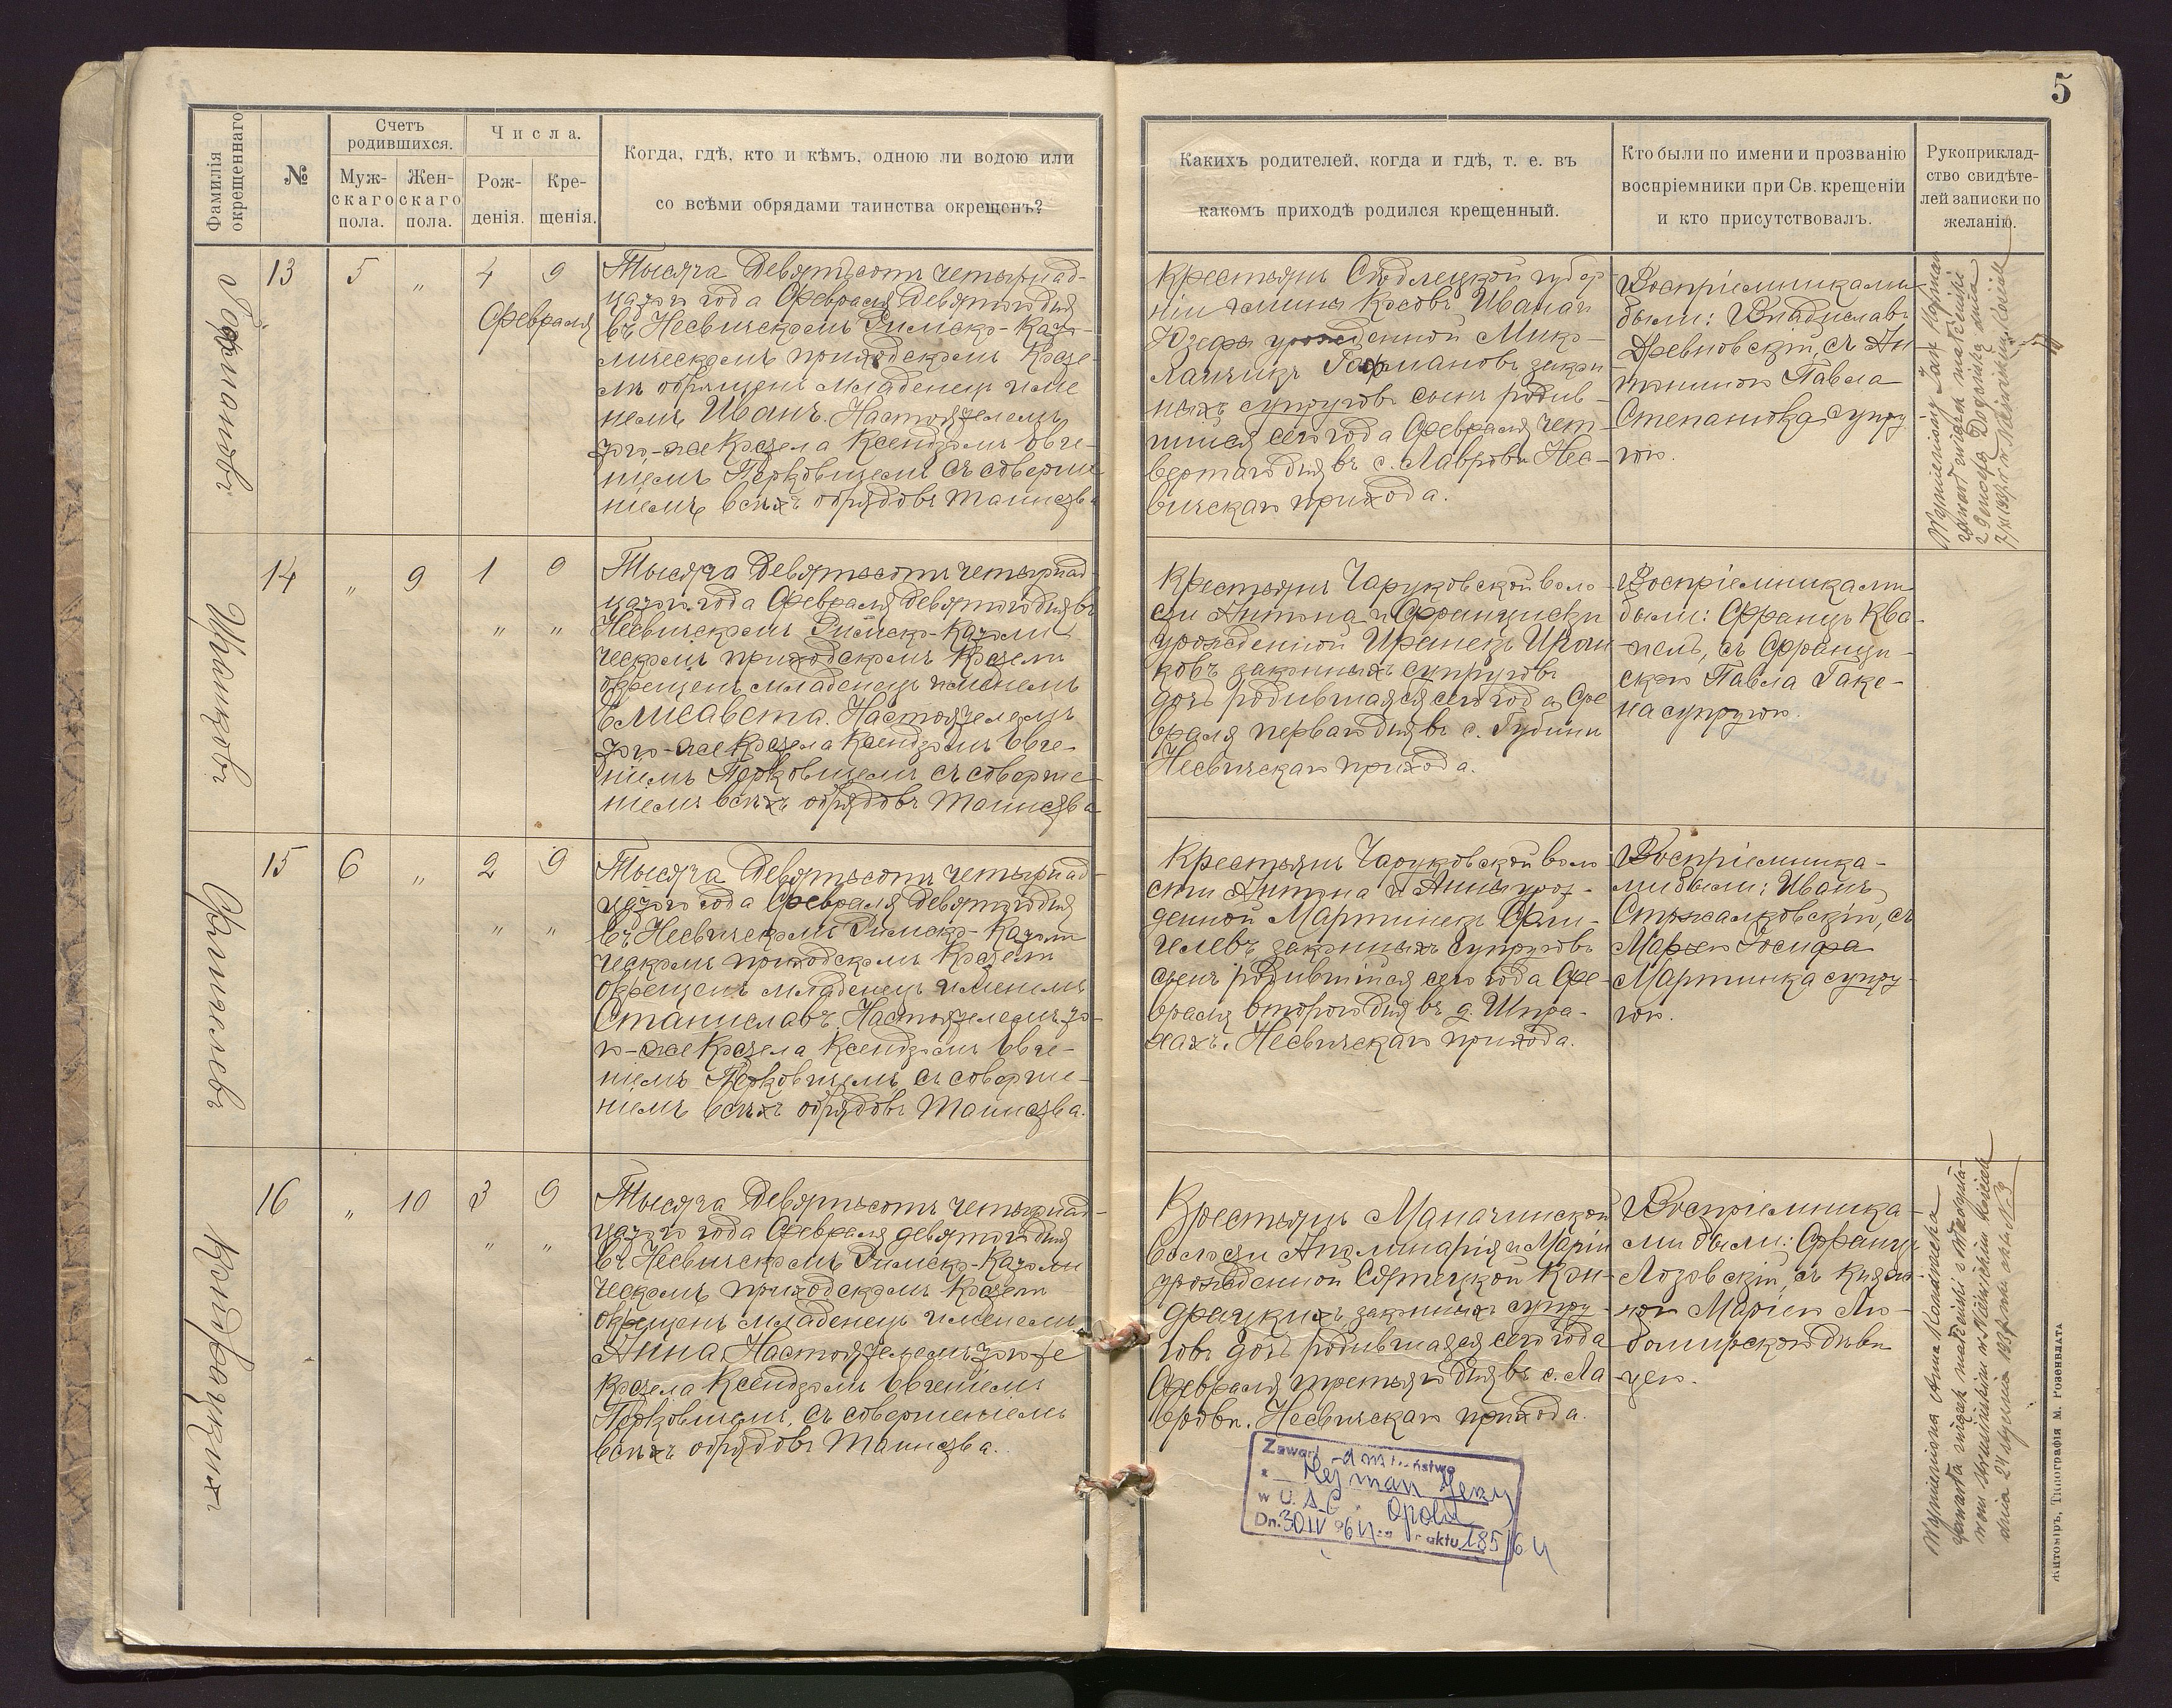 5
Фамилія окрещеннаго
№
Счетъ родившихся.
Мужскаго пола.
Женскаго пола.
Числа.
Рожденія.
Крещенія.
Когда, гдѣ, кто и кѣмъ, одною ли водою или
со всѣми обрядами таинства окрещенъ?
Какихъ родителей, когда и гдѣ, т. е. въ
какомъ приходѣ родился крещенный.
Кто были по имени и прозванію
воспріемники при Св. крещеніи
и кто присутствовалъ.
Рукоприклад-
ство свидѣте-
лей записки по
желанію.
Гофмановъ
13 5 „ 4 9
Февраля
Тысяча девятьсотъ четырнад-
цатого года Февраля девятого дня
въ Несвичскомъ Римско-Като-
лическомъ приходскомъ Косте-
лѣ окрещенъ младенецъ име
немъ Иванъ. Настоятелемъ
того-же Костела Ксендзомъ Евге-
ніемъ Перковичемъ съ соверше
ніемъ всѣхъ обрядовъ Таинства
Крестьянъ Сѣдлецкой губер-
ніи гмины Косовъ, Ивана и
Юзефы урожденной Мико-
лайчикъ Гофмановъ закон
ныхъ супруговъ сынъ родив-
шійся сего года Февраля чет-
вертаго дня въ с. Лавровѣ Нес-
вичскаго прихода.
Воспріемниками
были: Владиславъ
Древновскій, съ Ан
тониною Павла
Степанюка супру-
гою.
Wymieniony Jan Hofman
zawarł związek małżeński
z Genowefą
14 „ 9 1 9
„ „
Тысяча девятьсотъ четырнад-
цатого года Февраля девятого дня въ
Несвичскомъ Римско-Католи
ческомъ приходскомъ Костелѣ
окрещенъ младенецъ именемъ
Елисавета. Настоятелемъ
того-же Костела Ксендзомъ Евге-
ніемъ Перковичемъ съ соверше-
ніемъ всѣхъ обрядовъ Таинства
Крестьянъ Чаруковской воло-
сти Антона и Францишки
урожденной
законныхъ супруговъ
дочь родившаяся сего года Фе
враля перваго дня въ с. Губинѣ
Несвичскаго прихода.
Воспріемниками
были: Францъ Ква-
пель, съ Францi-
скою Павла Гаке-
на супругою.
15 6 „ 2 9
„ „
Тысяча девятьсотъ четырнад-
цатого года Февраля девятого дня
въ Несвичскомъ Римско-Католи
ческомъ приходскомъ Костелѣ
окрещенъ младенецъ именемъ
Станиславъ. Настоятелемъ то-
го-же Костела Ксендзомъ Евге-
ніемъ Перковичемъ, съ соверше-
ніемъ всѣхъ обрядовъ Таинства.
Крестьянъ Чаруковской воло
сти Антона и Анны урож-
денной Мартинекъ
законныхъ супруговъ
сынъ родившійся сего года Фе-
враля второго дня въ д. Шпра-
хахъ. Несвичскаго прихода.
Воспріемника-
ми были: Иванъ
Стржалковскій, съ
Маріею Іосифа
Мартинка супру-
гою.
Кондрацкихъ
16 „ 10 3 9
„ „
Тысяча девятьсотъ четырнад-
цатого года Февраля девятого дня
въ Несвичскомъ Римско-Католи
ческомъ приходскомъ Костелѣ
окрещенъ младенецъ именемъ
Анна. Настоятелемъ того же
Костела Ксендзомъ Евгеніемъ
Перковичемъ, съ совершеніемъ
всѣхъ обрядовъ Таинства.
Крестьянъ
волости Аполинарія и Маріи
урожденной Кон-
драцкихъ, законныхъ супру-
говъ дочь родившаяся сего года
Февраля третьяго дня въ с. Ла
вровѣ. Несвичскаго прихода.
Воспріемника-
ми были: Францъ
Лозовскій, съ Княж-
ною Маріею Лю-
бомирскою дѣви
цею.
Wymieniona Anna Kondracka
zawarła związek małżeński z
dnia 24 stycznia akt № 3
Zawarł małżeństwo
z Rejman Jerzy
w U.S.C. Opolu
Dn. 30 IV 1964 Nr aktu 185/64
Житоміръ, Типографія М. Розенблата